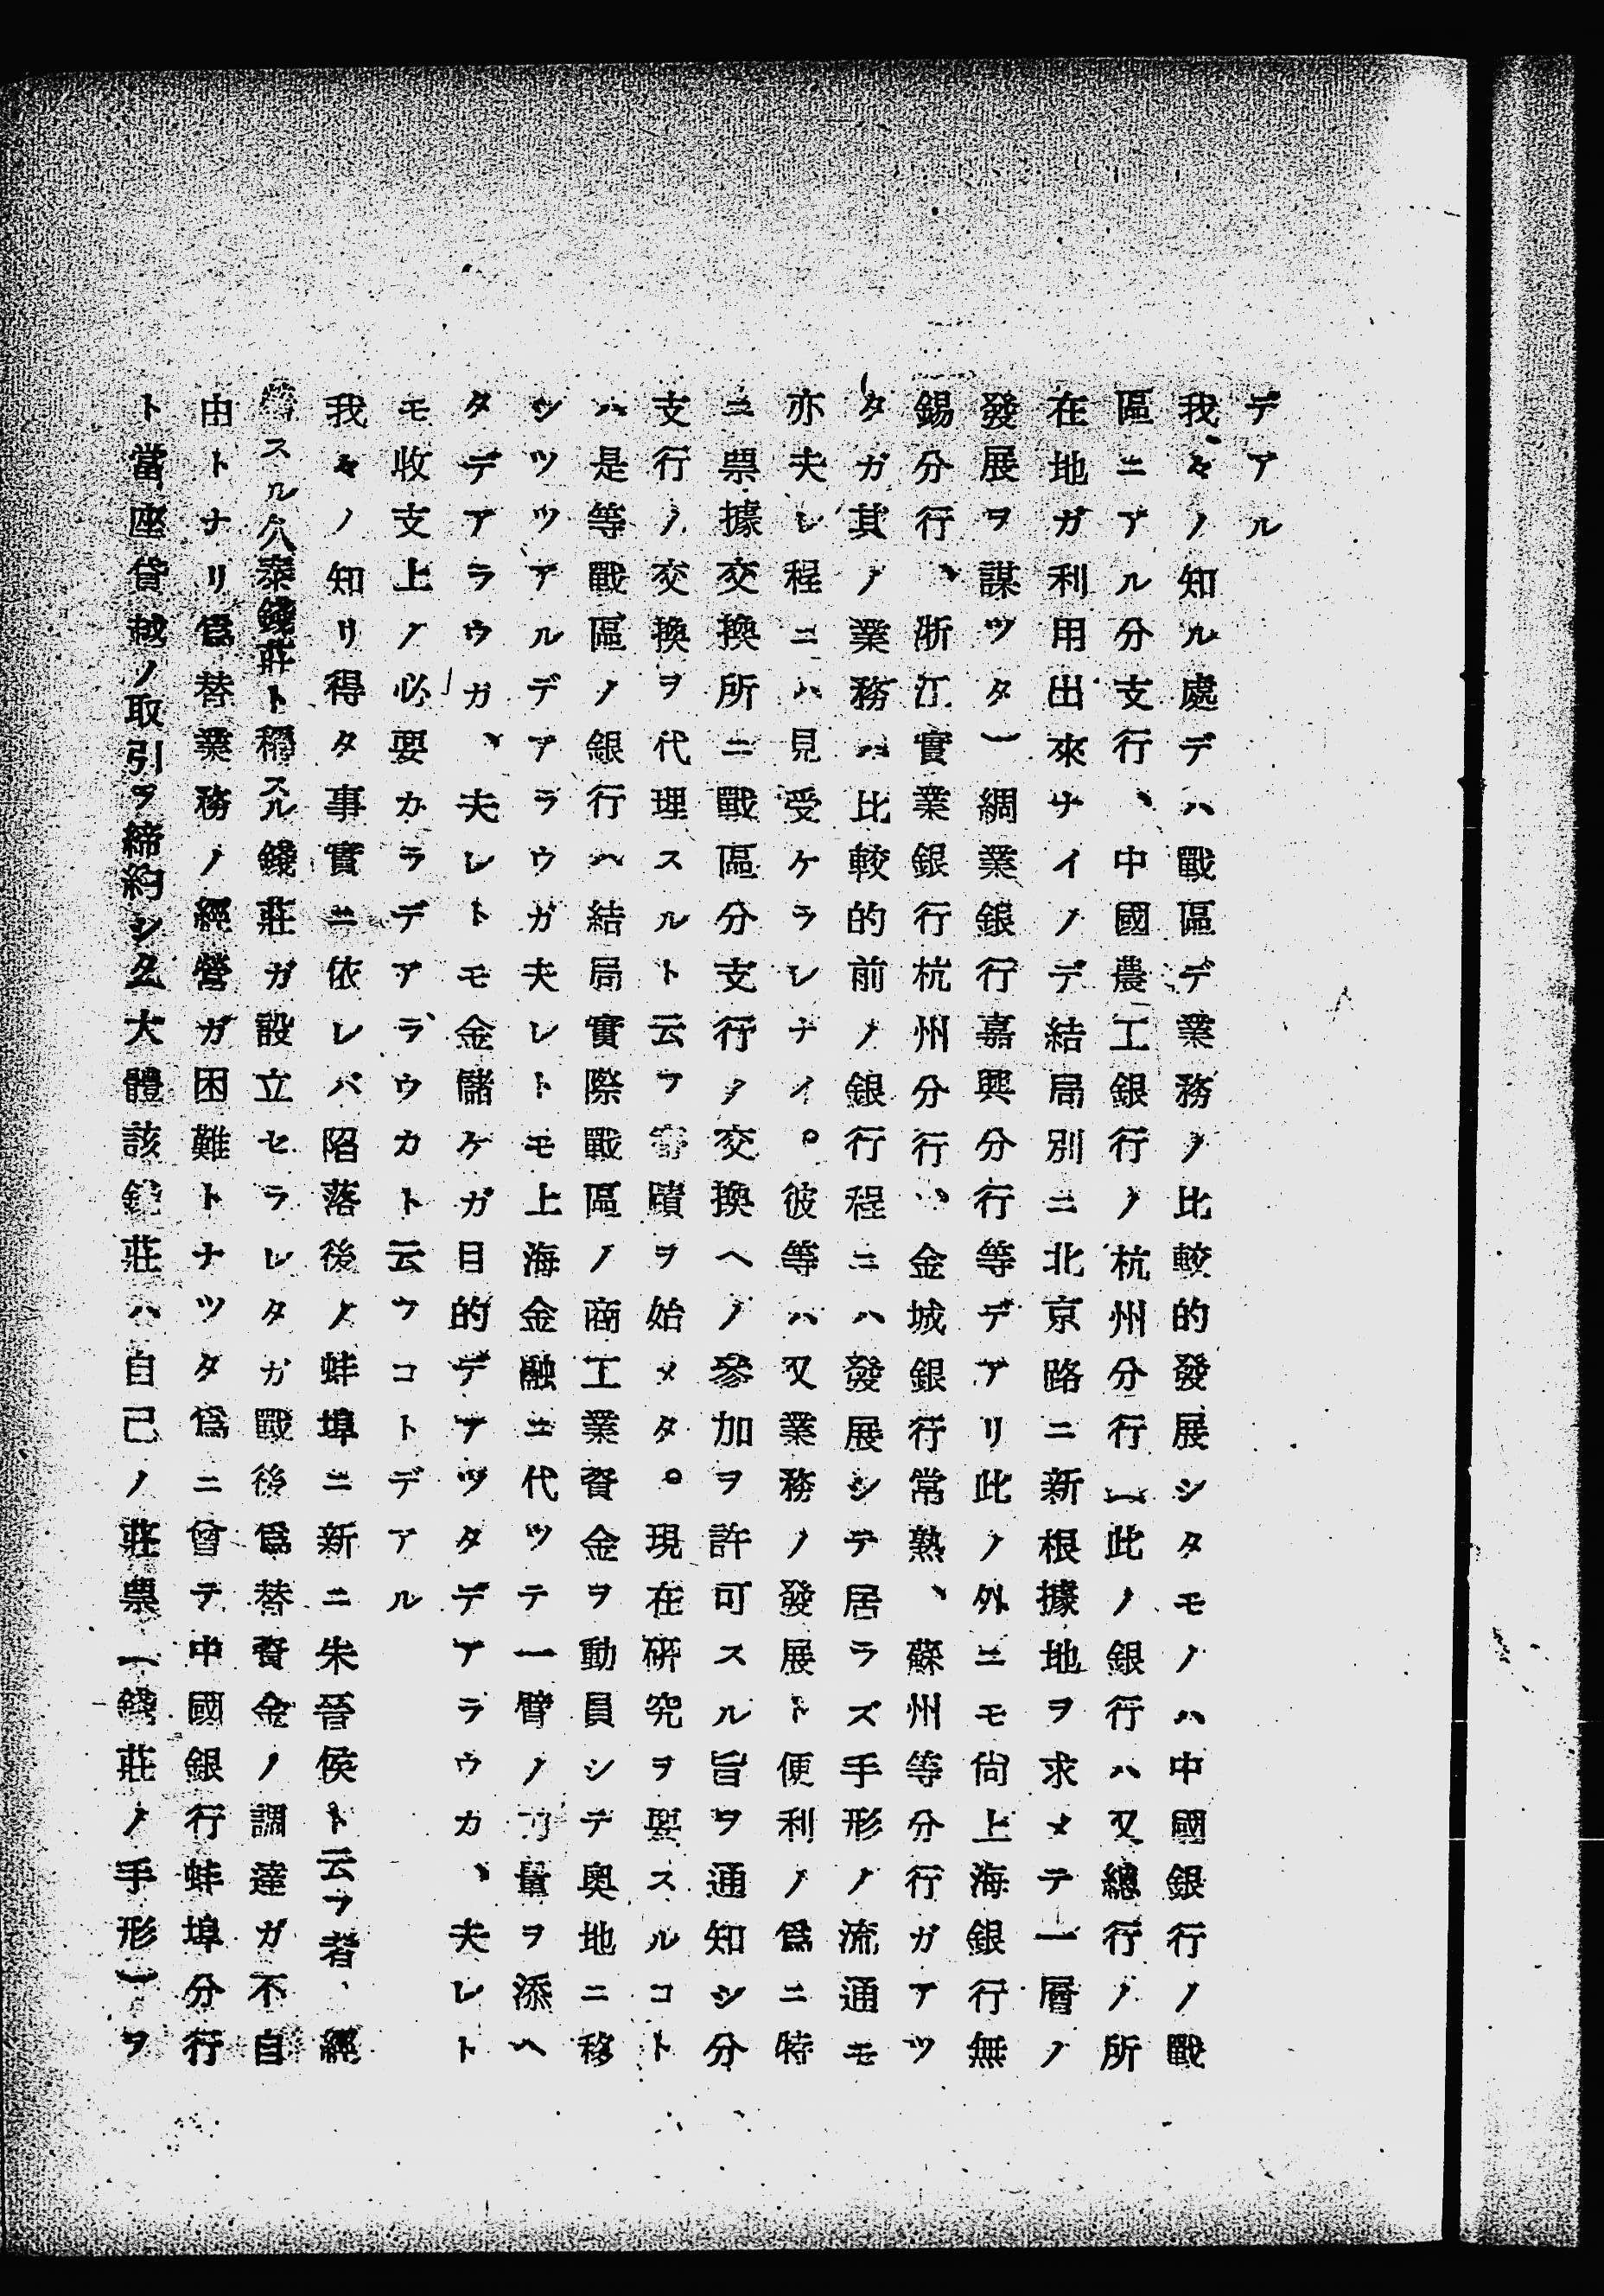 デアル
我々ノ知ル處デハ戰區デ業務ノ比較的發展シタモノハ中國銀行ノ戰
區ニアル分支行、中國農工銀行ノ杭州分行(此ノ銀行ハ又總行ノ所
在地ガ利用出來ナイノデ結局別ニ北京路ニ新根據地ヲ求メテ一層ノ
發展ヲ謀ツタ)綢業銀行嘉興分行等デアリ此ノ外ニモ尙上海銀行無
錫分行、浙江實業銀行杭州分行、金城銀行常熟、蘇州等分行ガアツ
タガ其ノ業務ハ比較的前ノ銀行程ニハ發展シテ居ラズ手形ノ流通モ
亦夫レ程ニハ見受ケラレナイ。彼等ハ又業務ノ發展ト便利ノ爲ニ特
ニ票據交換所ニ戰區分支行ノ交換ヘノ參加ヲ許可スル旨ヲ通知シ分
支行ノ交換ヲ代理スルト云フ蹟ヲ始メタ。現在硏究ヲ要スルコト
ハ是等戰區ノ銀行ハ結局實際戰區ノ商工業資金ヲ動員シテ奧地ニ移
シツツアルデアラウガ夫レトモ上海金融ニ代ツテ一臂ノ力量ヲ添ヘ
タデアラウガ、夫レトモ金儲ケガ目的デアツタデアラウカ、夫レト
モ收支上ノ必要カラデアラウカト云フコトデアル
我々ノ知リ得タ事實ニ依レバ陷落後ノ蚌埠ニ新ニ朱晉侯ト云フ者、經
營スル久泰錢莊ト稱スル錢莊ガ設立セラレタガ戰後爲替資金ノ調達ガ不自
由トナリ爲替業務ノ經營ガ困難トナツタ爲ニ曾テ中國銀行蚌埠分行
ト當座貸越ノ取引ヲ締約シタ大體該錢莊ハ自己ノ莊票(錢莊ノ手形)ヲ